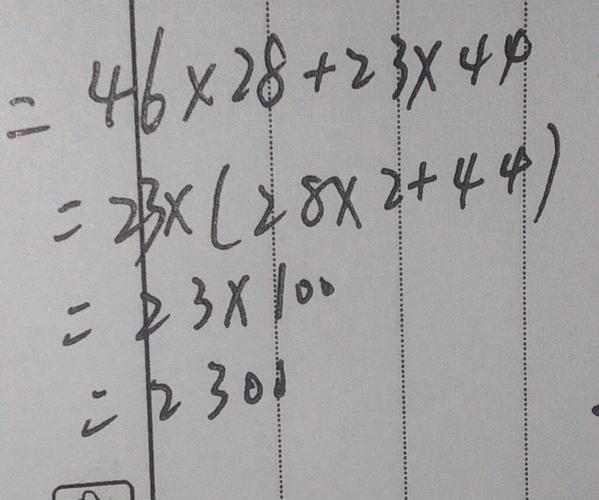 = 46×28+23×44
= 23×(28×2+44)
= 23×100
= 2300